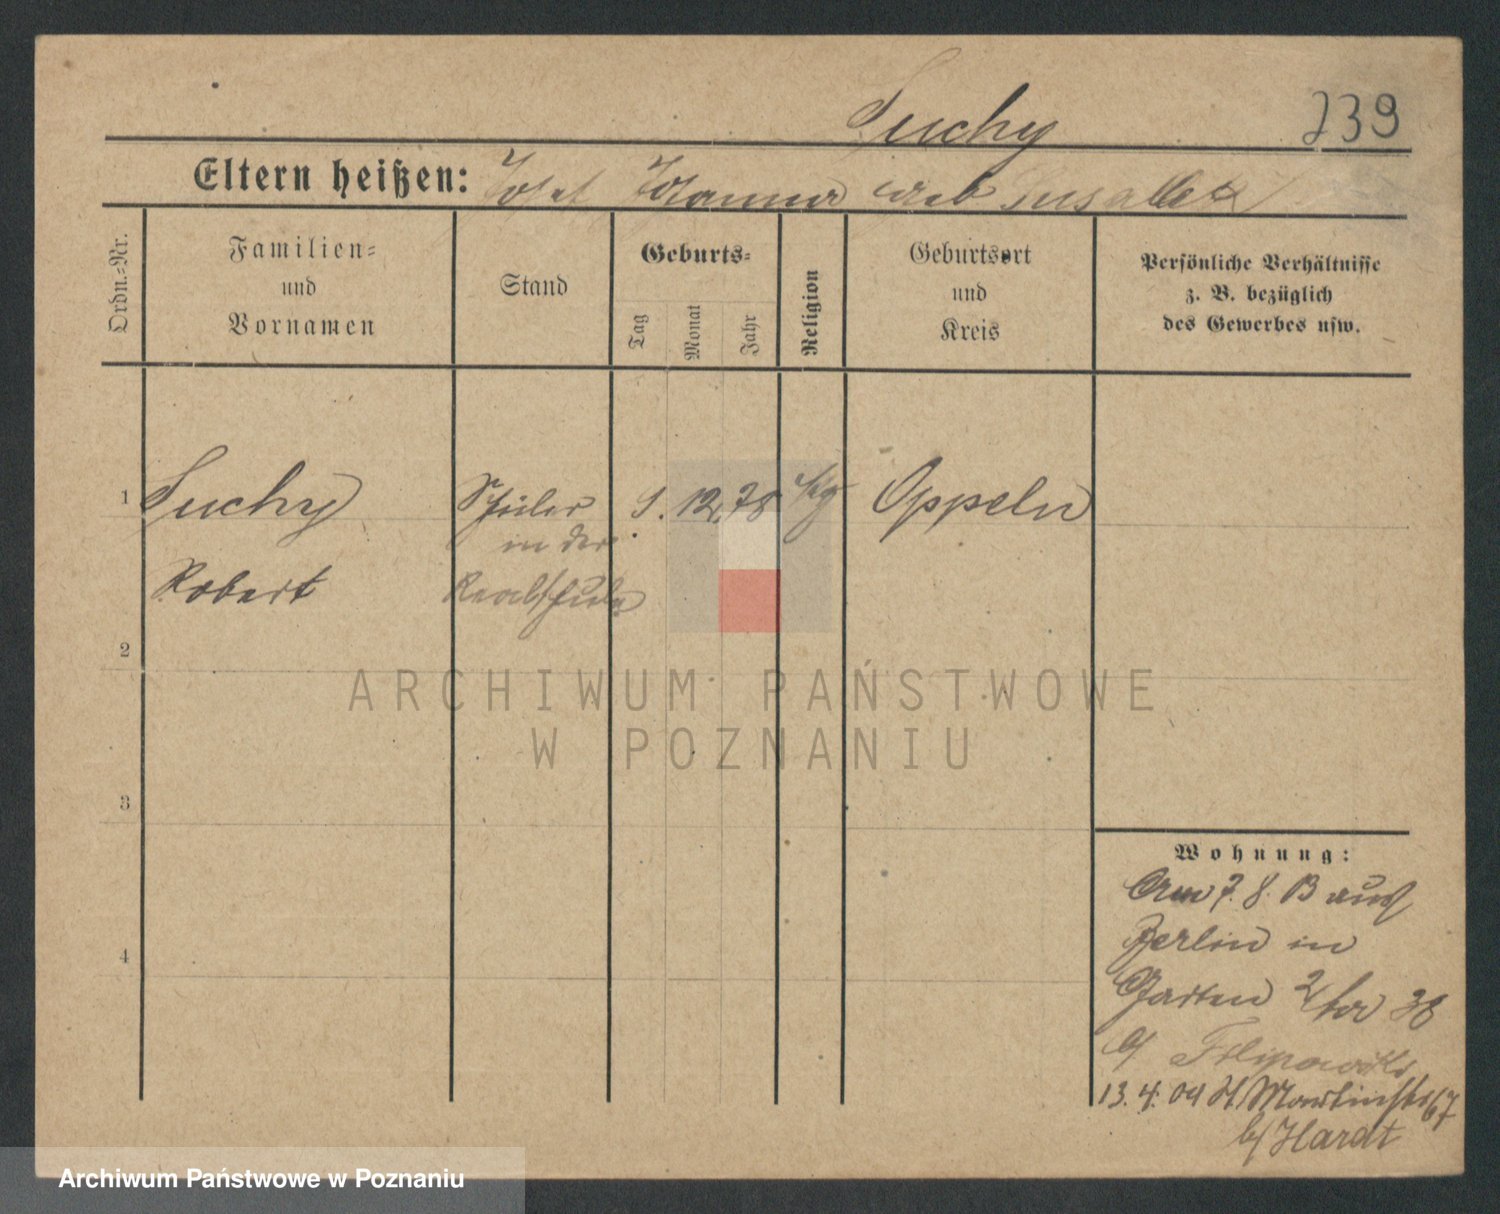 Suchy
739
Eltern heißen: Josef Johanna geb
Ordn.-Nr.
Familien-
und
Vornamen
Stand
Geburts-
Tag
Monat
Jahr
Religion
Geburtsort
und
Kreis
Persönliche Verhältnisse
z. B. bezüglich
des Gewerbes usw.
1
Suchy
Schüler
9. 12. 78
Oppeln
in der
Robert
Realschule
2
ARCHIWUM PAŃSTWOWE
W POZNANIU
3
Wohnung:
Am 7. 8. 13 aus
Berlin in
4
Garten 38
b/
13. 4. 04 St. Martinstr 67
b/ Hardt
Archiwum Państwowe w Poznaniu